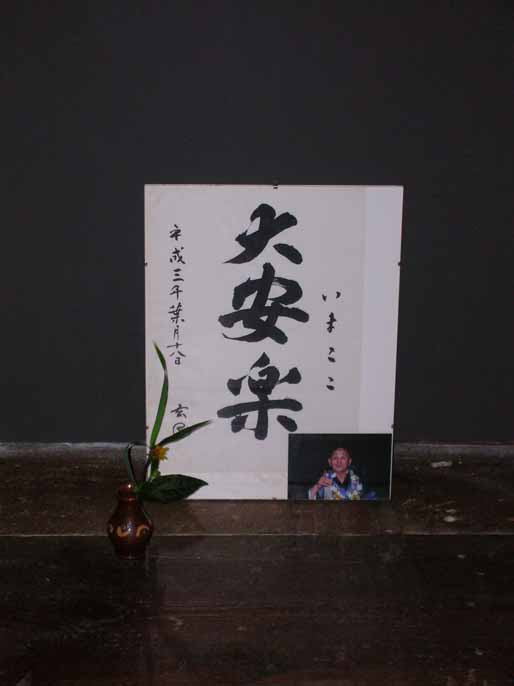 いまここ
大安楽
平成三年葉月十八日
玄